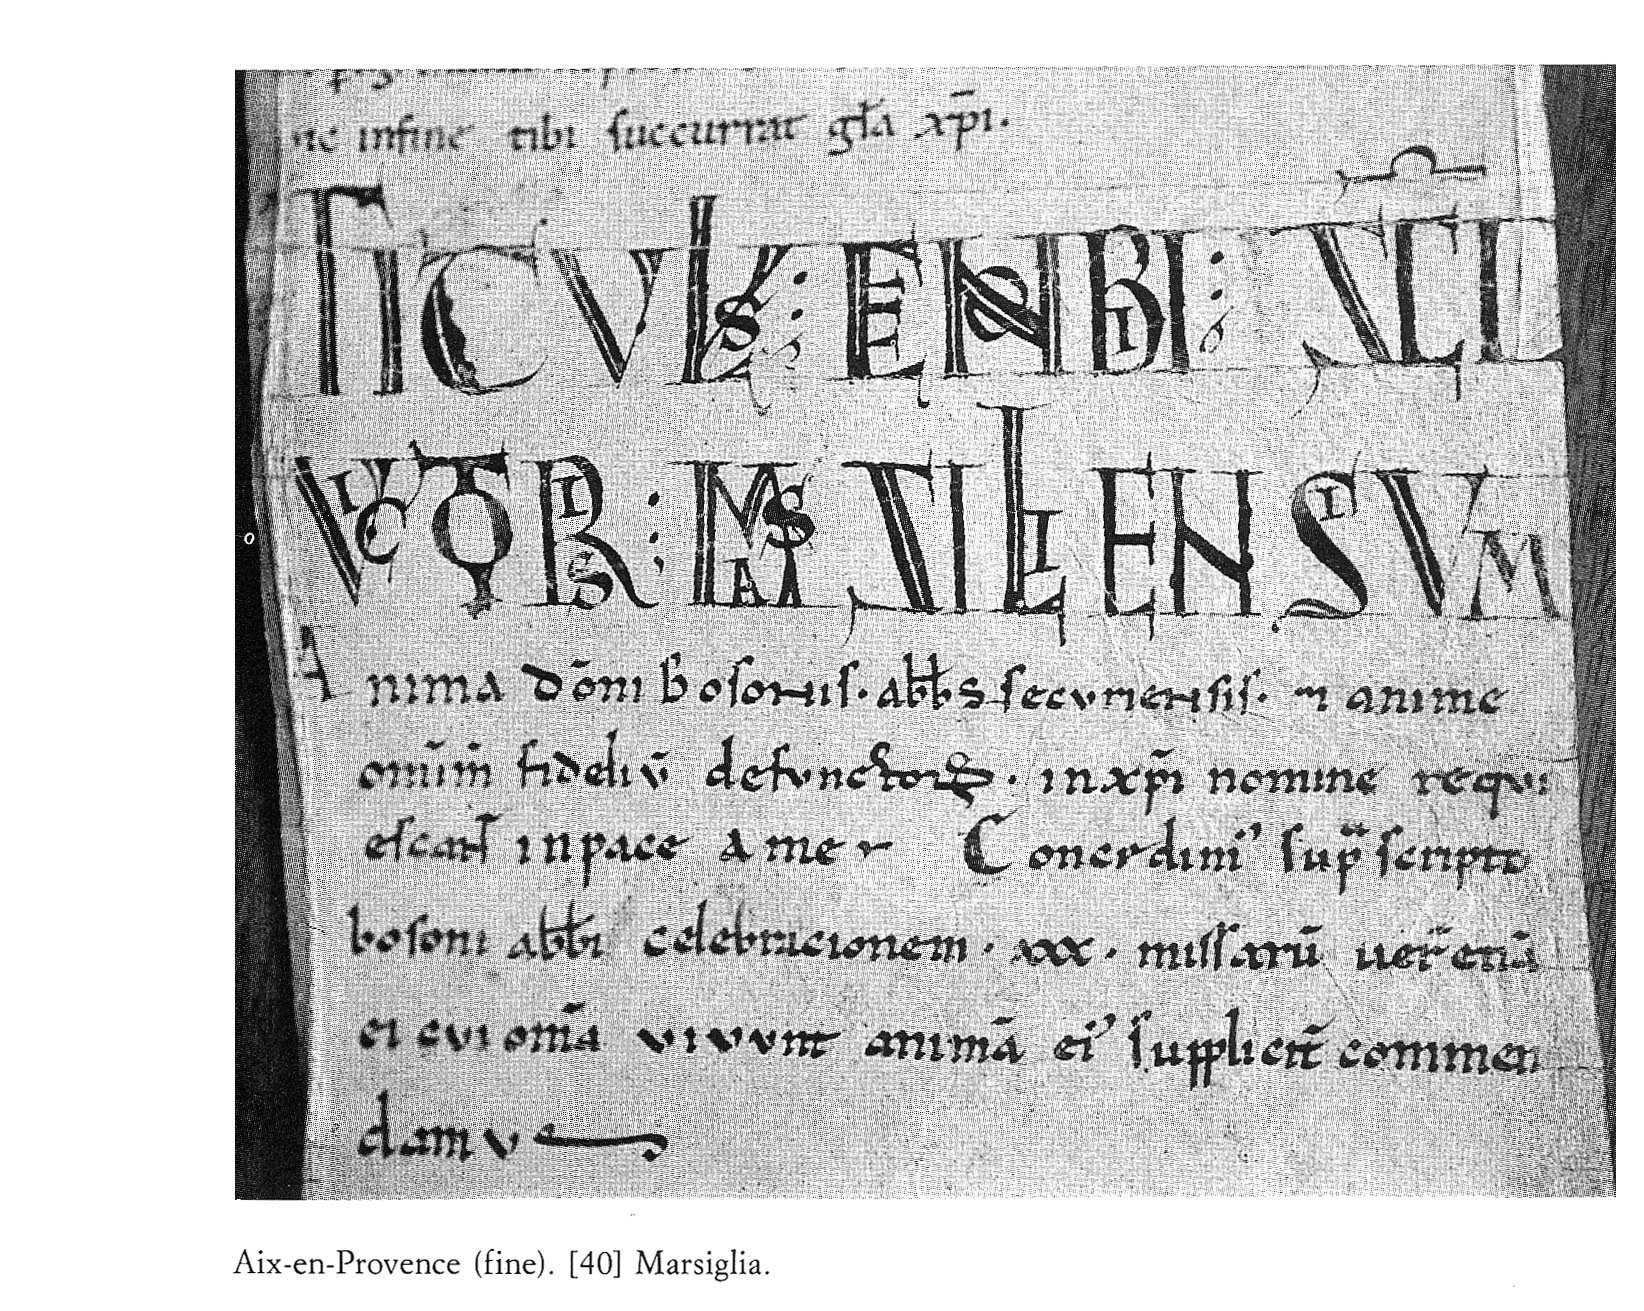 ne infine tibi succurrat gl̄a xp̄i.
TITULUS: CENOBII: SC̄I
VICTORIS: MASSILIENSIUM
Anima dōni bosonis. abb̄s secvnensis. 7 anime
om̄im fideliv̄ defvnctorꝝ. inxp̄i nomine requi
escant inpace amen Concedimꝰ sup̄scripto
bosoni abb̄i celebracionem. xxx. missarū
ei cvi om̄ia vivvnt animā eiꝰ supplicit̄ commen
damvs
Aix-en-Provence (fine). [40] Marsiglia.